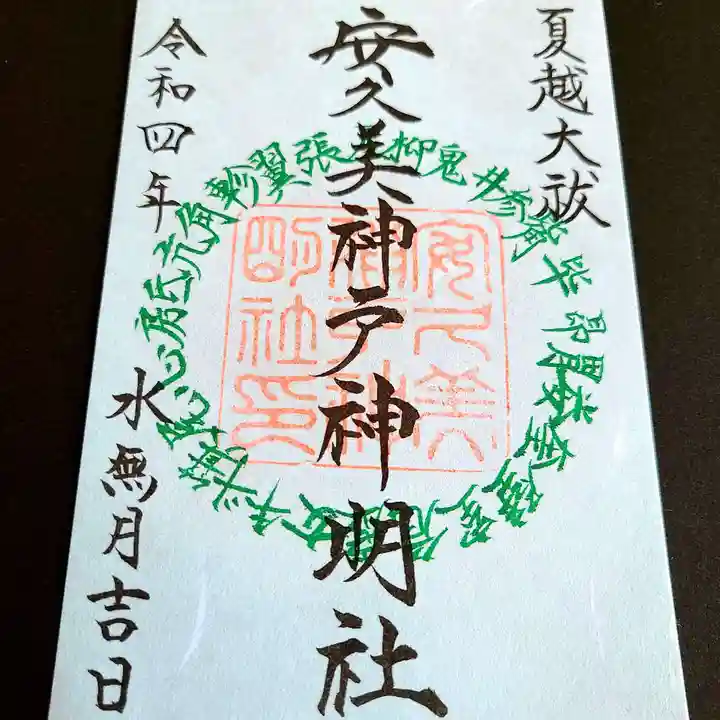 夏越大祓
安久美神戸神明社
令和四年
水無月吉日
角亢氐房心尾箕斗牛女
婁胃昴畢觜参井鬼柳
張翼軫
安久美
神戸神
明社印